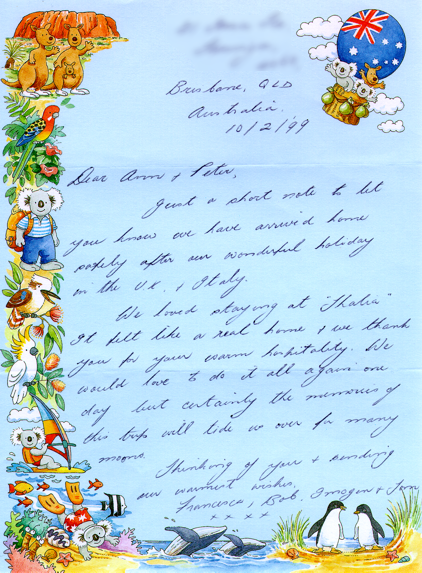 Brisbane, QLD
Australia.
10/2/99
Dear Ann & Peter,
Just a short note to let
you know we have arrived home
safely after our wonderful holiday
in the U.K. & Italy.
We loved staying at "Thalia"
It felt like a real home & we thank
you for your warm hospitality. We
would love to do it all again one
day but certainly the memories of
this trip will tide us over for many
moons.
Thinking of you & sending
our warmest wishes,
Francesca, Bob, Imogen &
x x x x